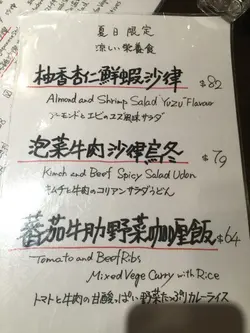 夏日限定
涼しい栄養食
柚香杏仁鮮蝦沙律 $82
Almond and Shrimp Salad Yuzu Flavour
アーモンドとエビのユズ風味サラダ
泡菜牛肉沙律烏冬 $79
Kimch and Beef Spicy Salad Udon
キムチと牛肉のコリアンサラダうどん
蕃茄牛肋野菜咖喱飯 $64
Tomato and Beef Ribs
Mixed Vege Curry with Rice
トマトと牛肉の甘酸っぱい野菜たっぷりカレーライス